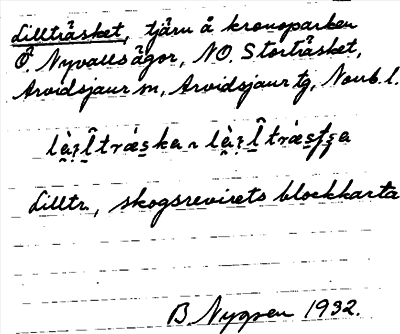 Lillträsket, tjärn å kronoparken
Ö. Nyvallsägor, NO. Storträsket,
Arvidsjaur sn, Arvidsjaur tg, Norrb. l.
Lilltr., skogsrevirets blockkarta
B Nygren 1932.